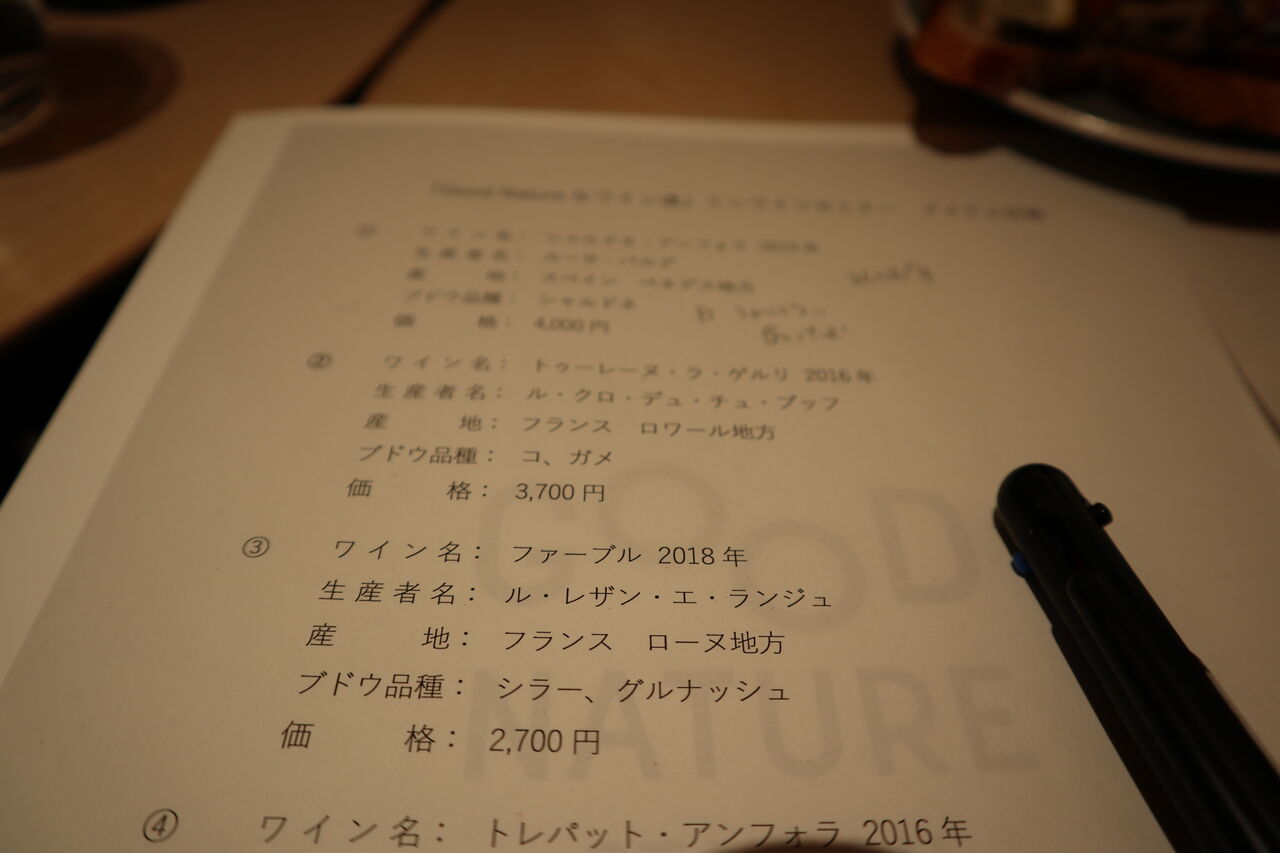 「Good Nature なワイン達」ミニワインセミナー
① ワイン名： シャルドネ・アンフォラ 2015年
生産者名： カーサ・パルド
産　　地： スペイン　ペネデス地方
ブドウ品種： シャルドネ
価　　格： 4,000円
② ワイン名： トゥーレーヌ・ラ・ゲルリ 2016年
生産者名： ル・クロ・デュ・チュ・ブッフ
産　　地： フランス　ロワール地方
ブドウ品種： コ、ガメ
価　　格： 3,700円
③ ワイン名： ファーブル 2018年
生産者名： ル・レザン・エ・ランジュ
産　　地： フランス　ローヌ地方
ブドウ品種： シラー、グルナッシュ
価　　格： 2,700円
④ ワイン名： トレパット・アンフォラ 2016年
GOOD
NATURE